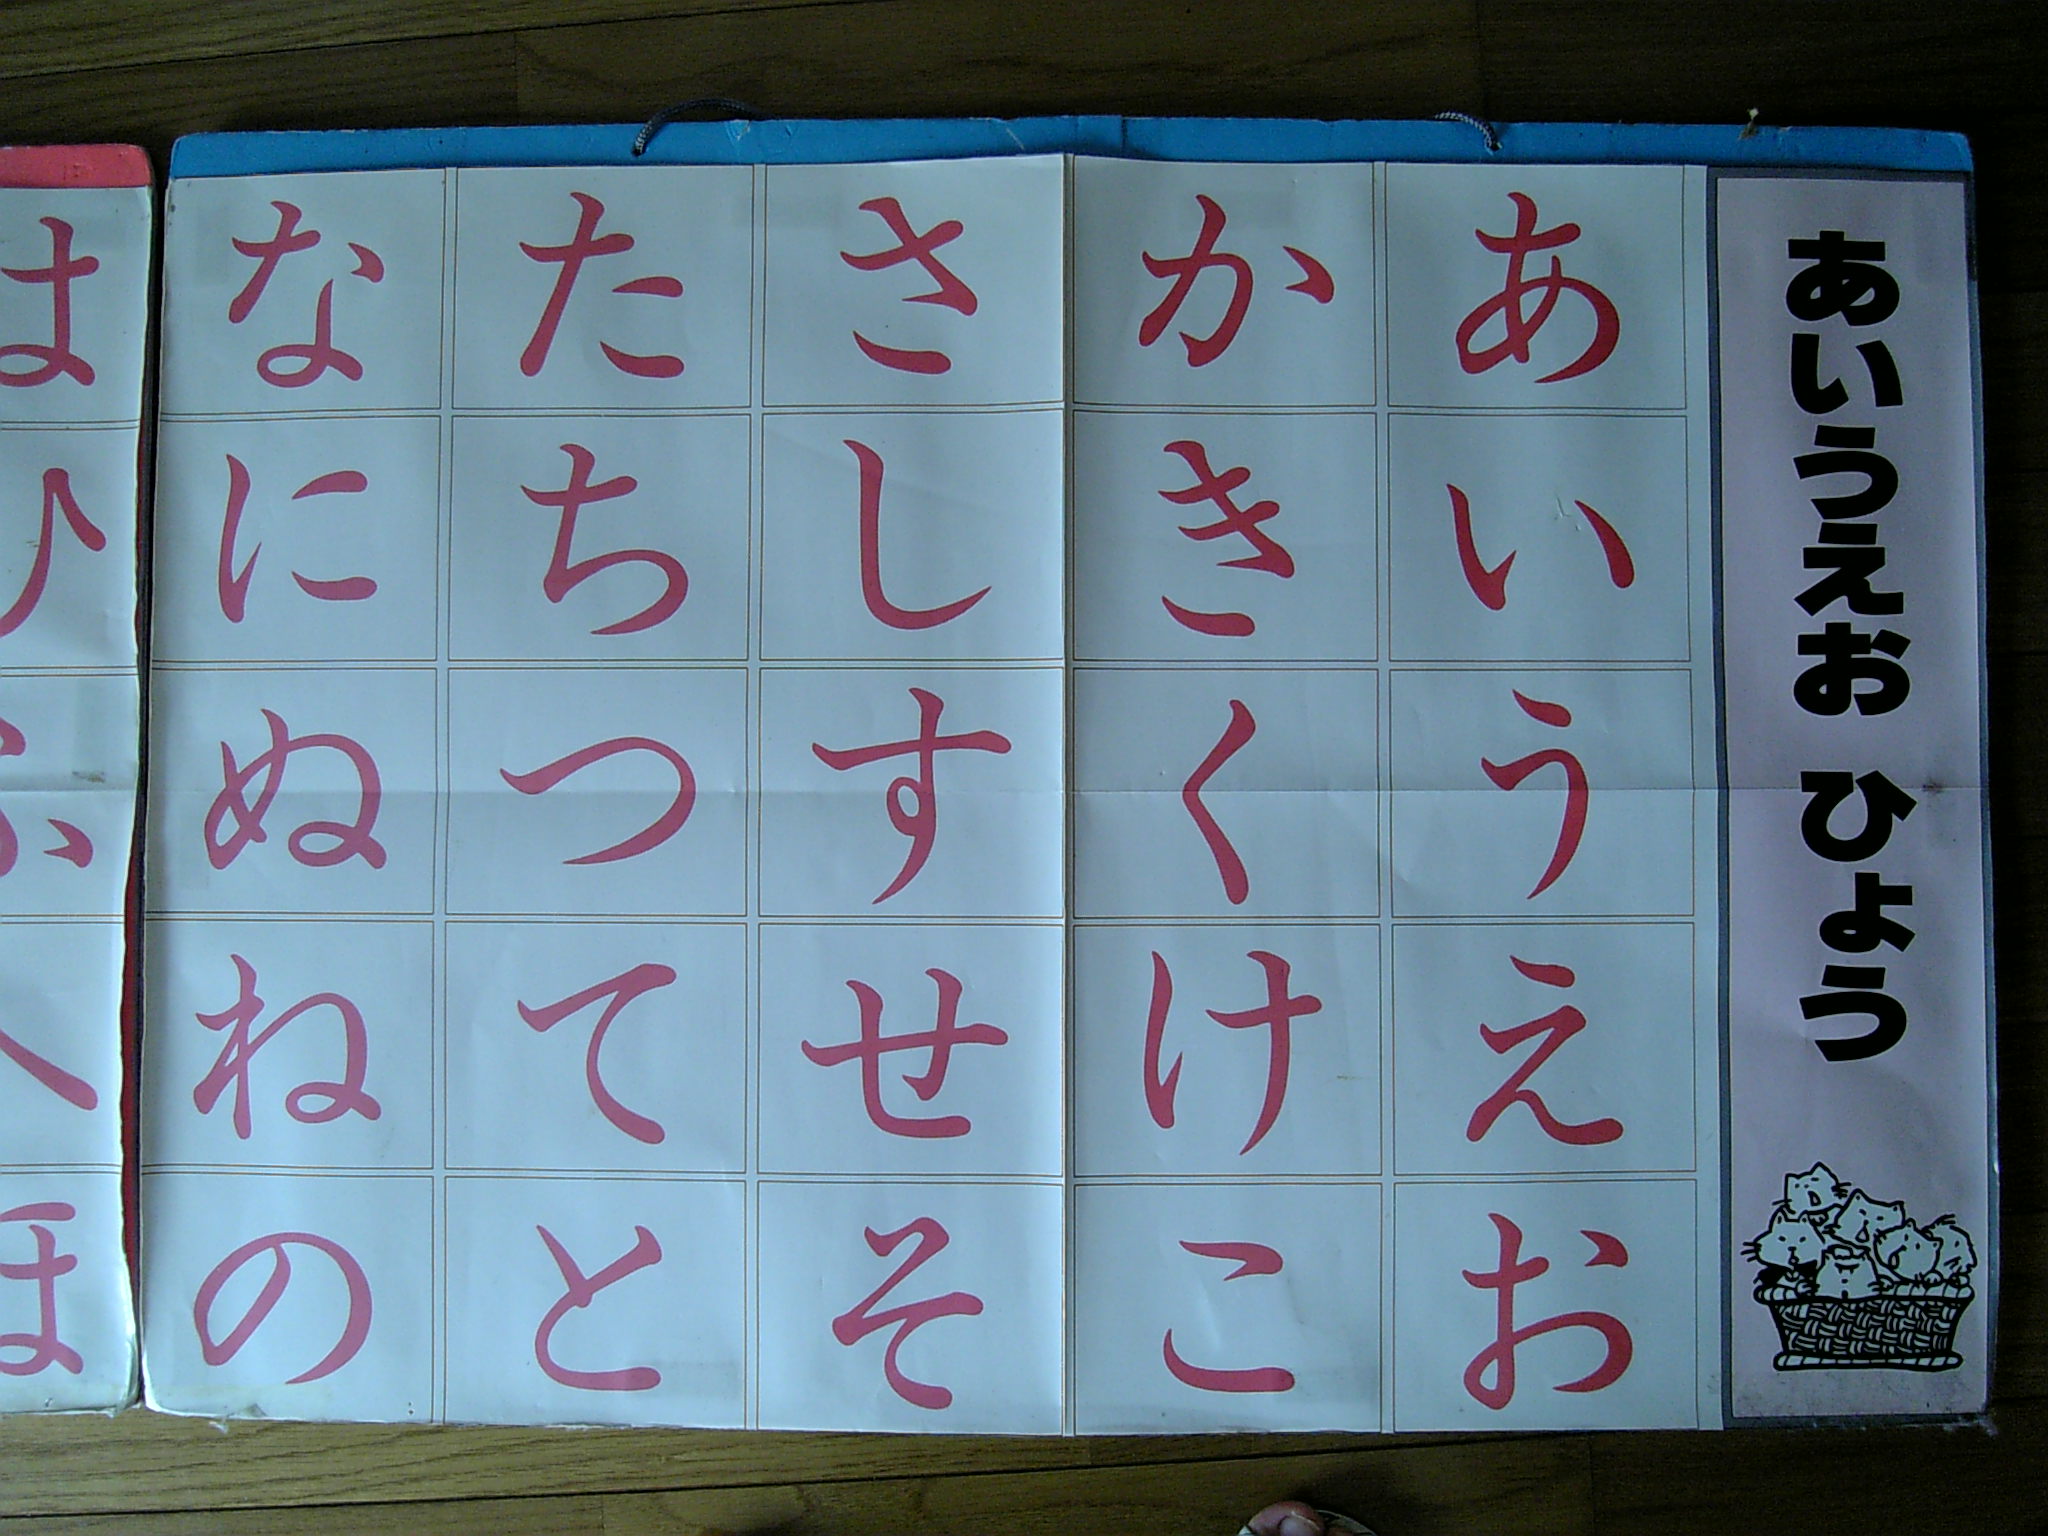 あいうえお ひょう
あいうえお
かきくけこ
さしすせそ
たちつてと
なにぬねの
はひふへほ